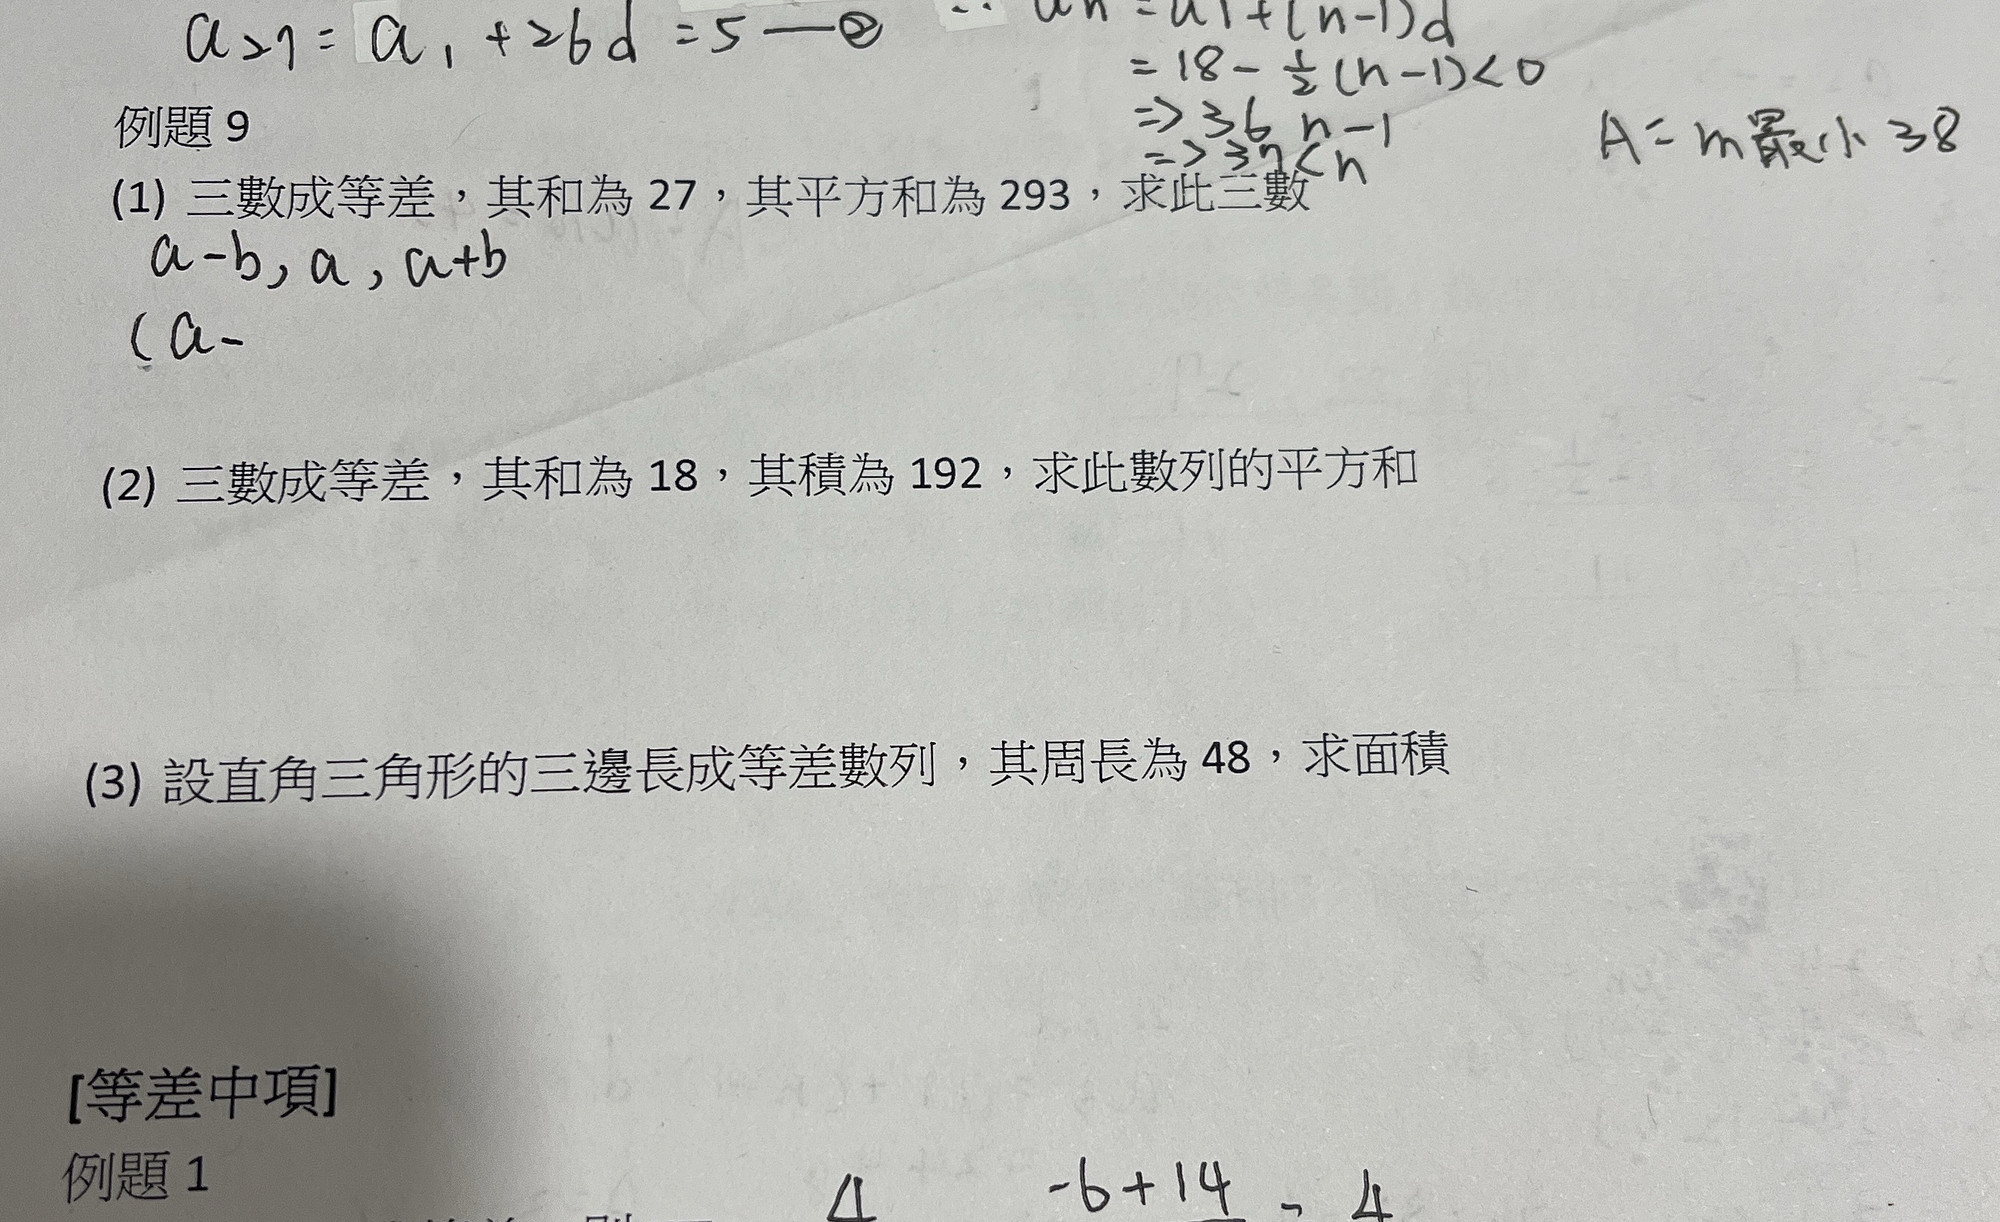 a27 = a1 + 26d = 5 — ②
∴ an = a1 + (n-1)d
= 18 - 1/2 (n-1) < 0
=> 36 n-1
=> 37 < n
A = m最小 38
例題 9
(1) 三數成等差，其和為 27，其平方和為 293，求此三數
a-b, a, a+b
(a-
(2) 三數成等差，其和為 18，其積為 192，求此數列的平方和
(3) 設直角三角形的三邊長成等差數列，其周長為 48，求面積
[等差中項]
例題 1
4
-6+14 = 4